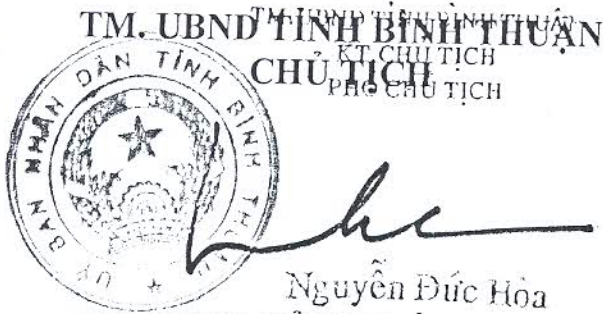 TM. UBND TỈNH BÌNH THUẬN
TM. UBND TỈNH BÌNH THUẬN
CHỦ TỊCH
KT. CHỦ TỊCH
PHÓ CHỦ TỊCH
ỦY BAN NHÂN DÂN TỈNH BÌNH THUẬN
Nguyễn Đức Hòa